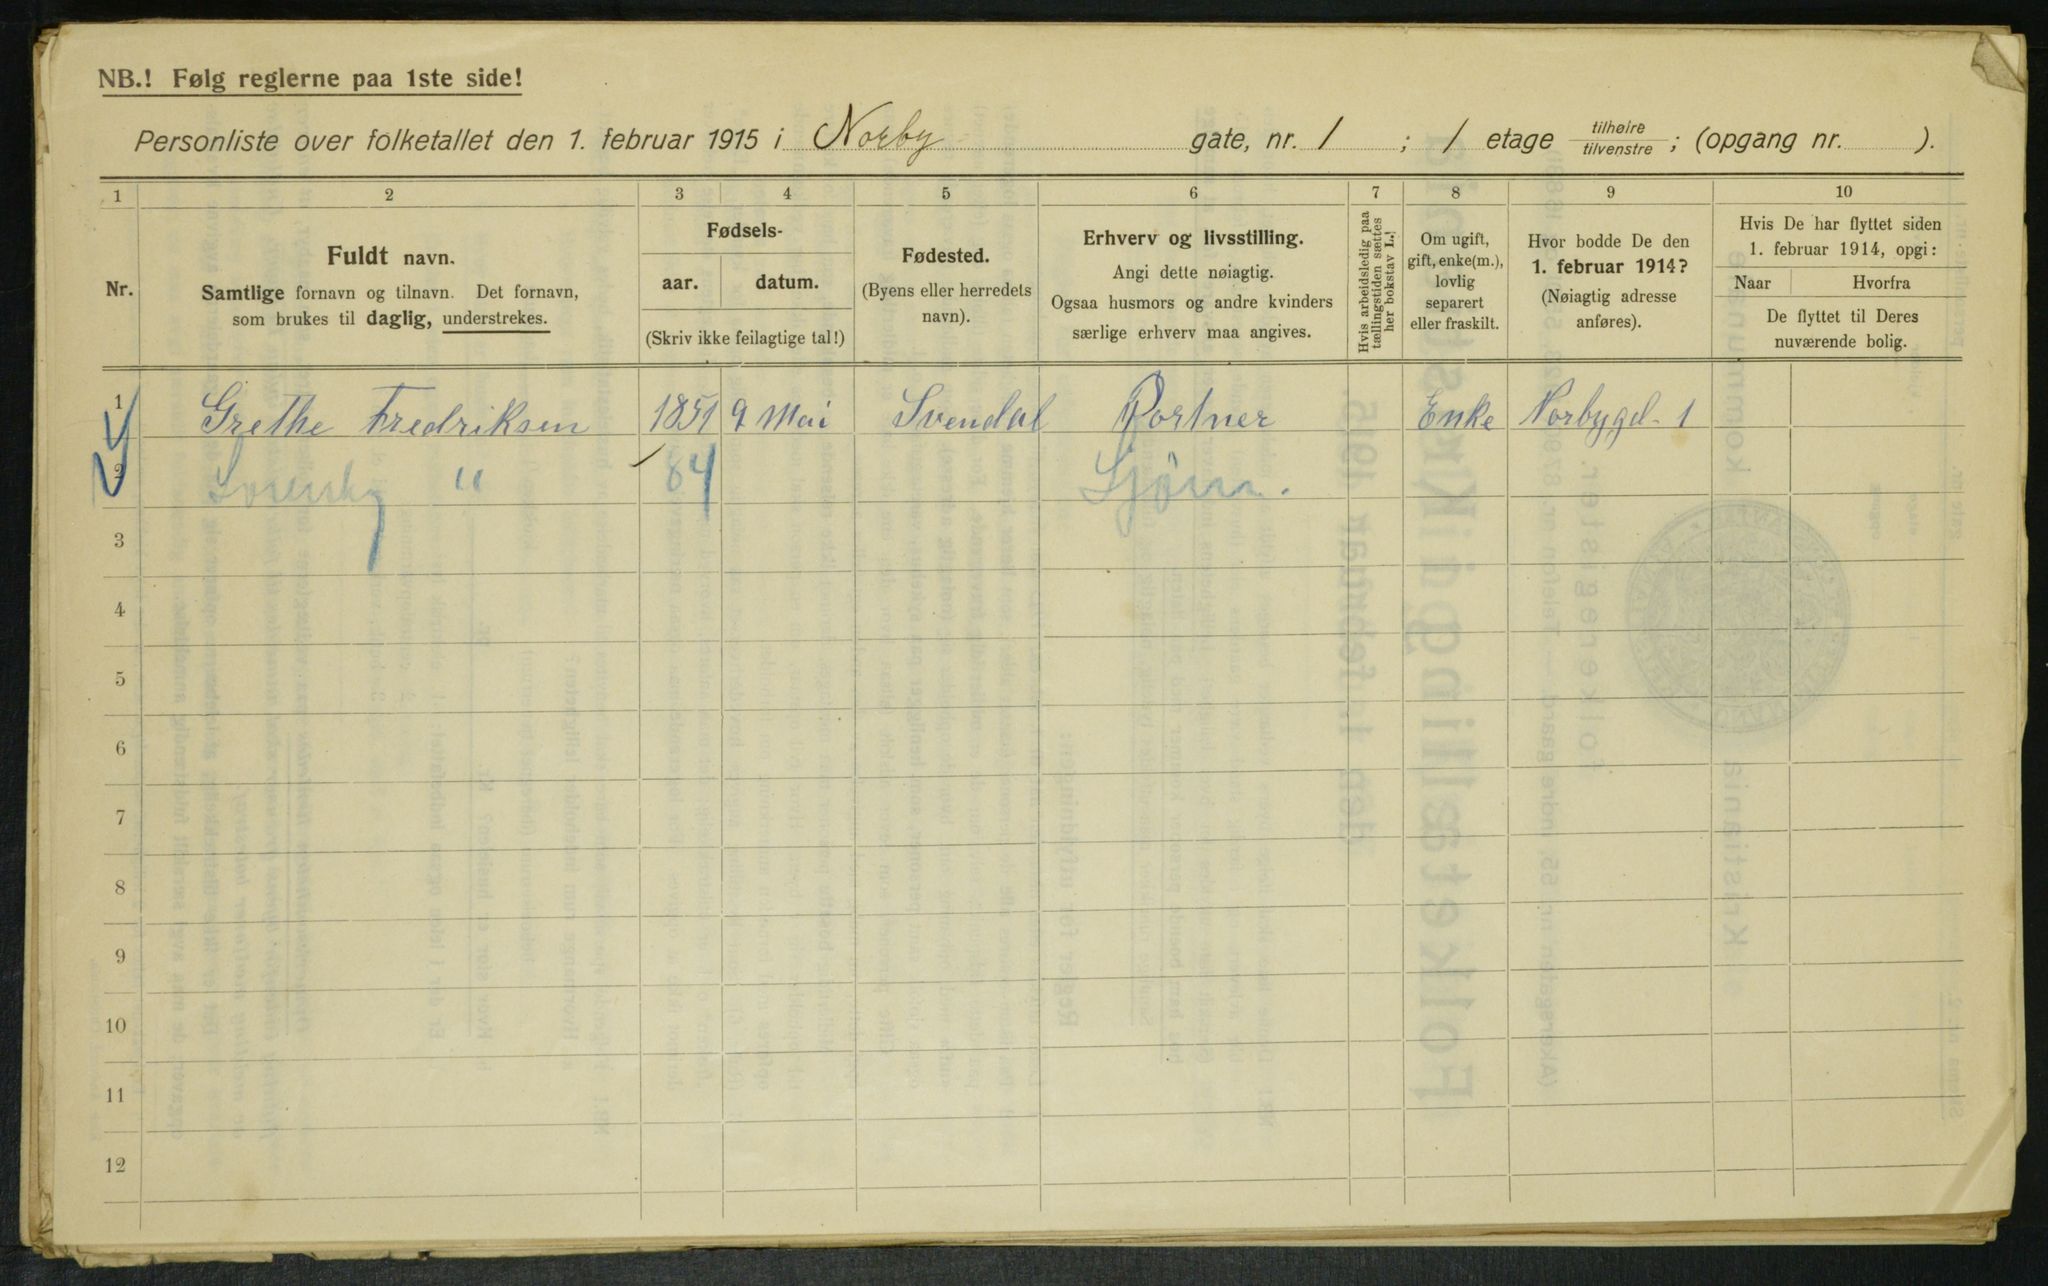 NB.! Følg reglerne paa 1ste side!
Personliste over folketallet den 1. februar 1915 i Norby gate, nr. 1 ; 1 etage tilhøire tilvenstre ; (opgang nr. ).
1 2 3 4 5 6 7 8 9 10
Nr.
Fuldt navn.
Samtlige fornavn og tilnavn. Det fornavn,
som brukes til daglig, understrekes.
Fødsels-
aar. datum.
(Skriv ikke feilagtige tal!)
Fødested.
(Byens eller herredets
navn).
Erhverv og livsstilling.
Angi dette nøiagtig.
Ogsaa husmors og andre kvinders
særlige erhverv maa angives.
Hvis arbeidsledig paa
tællingstiden sættes
her bokstav L.!
Om ugift,
gift, enke(m.),
lovlig
separert
eller fraskilt.
Hvor bodde De den
1. februar 1914?
(Nøiagtig adresse
anføres).
Hvis De har flyttet siden
1. februar 1914, opgi:
Naar Hvorfra
De flyttet til Deres
nuværende bolig.
1 Grethe Fredriksen 1851 9 Mai Svendal Portner Enke Norbygd- 1
2 " 84
3
4
5
6
7
8
9
10
11
12